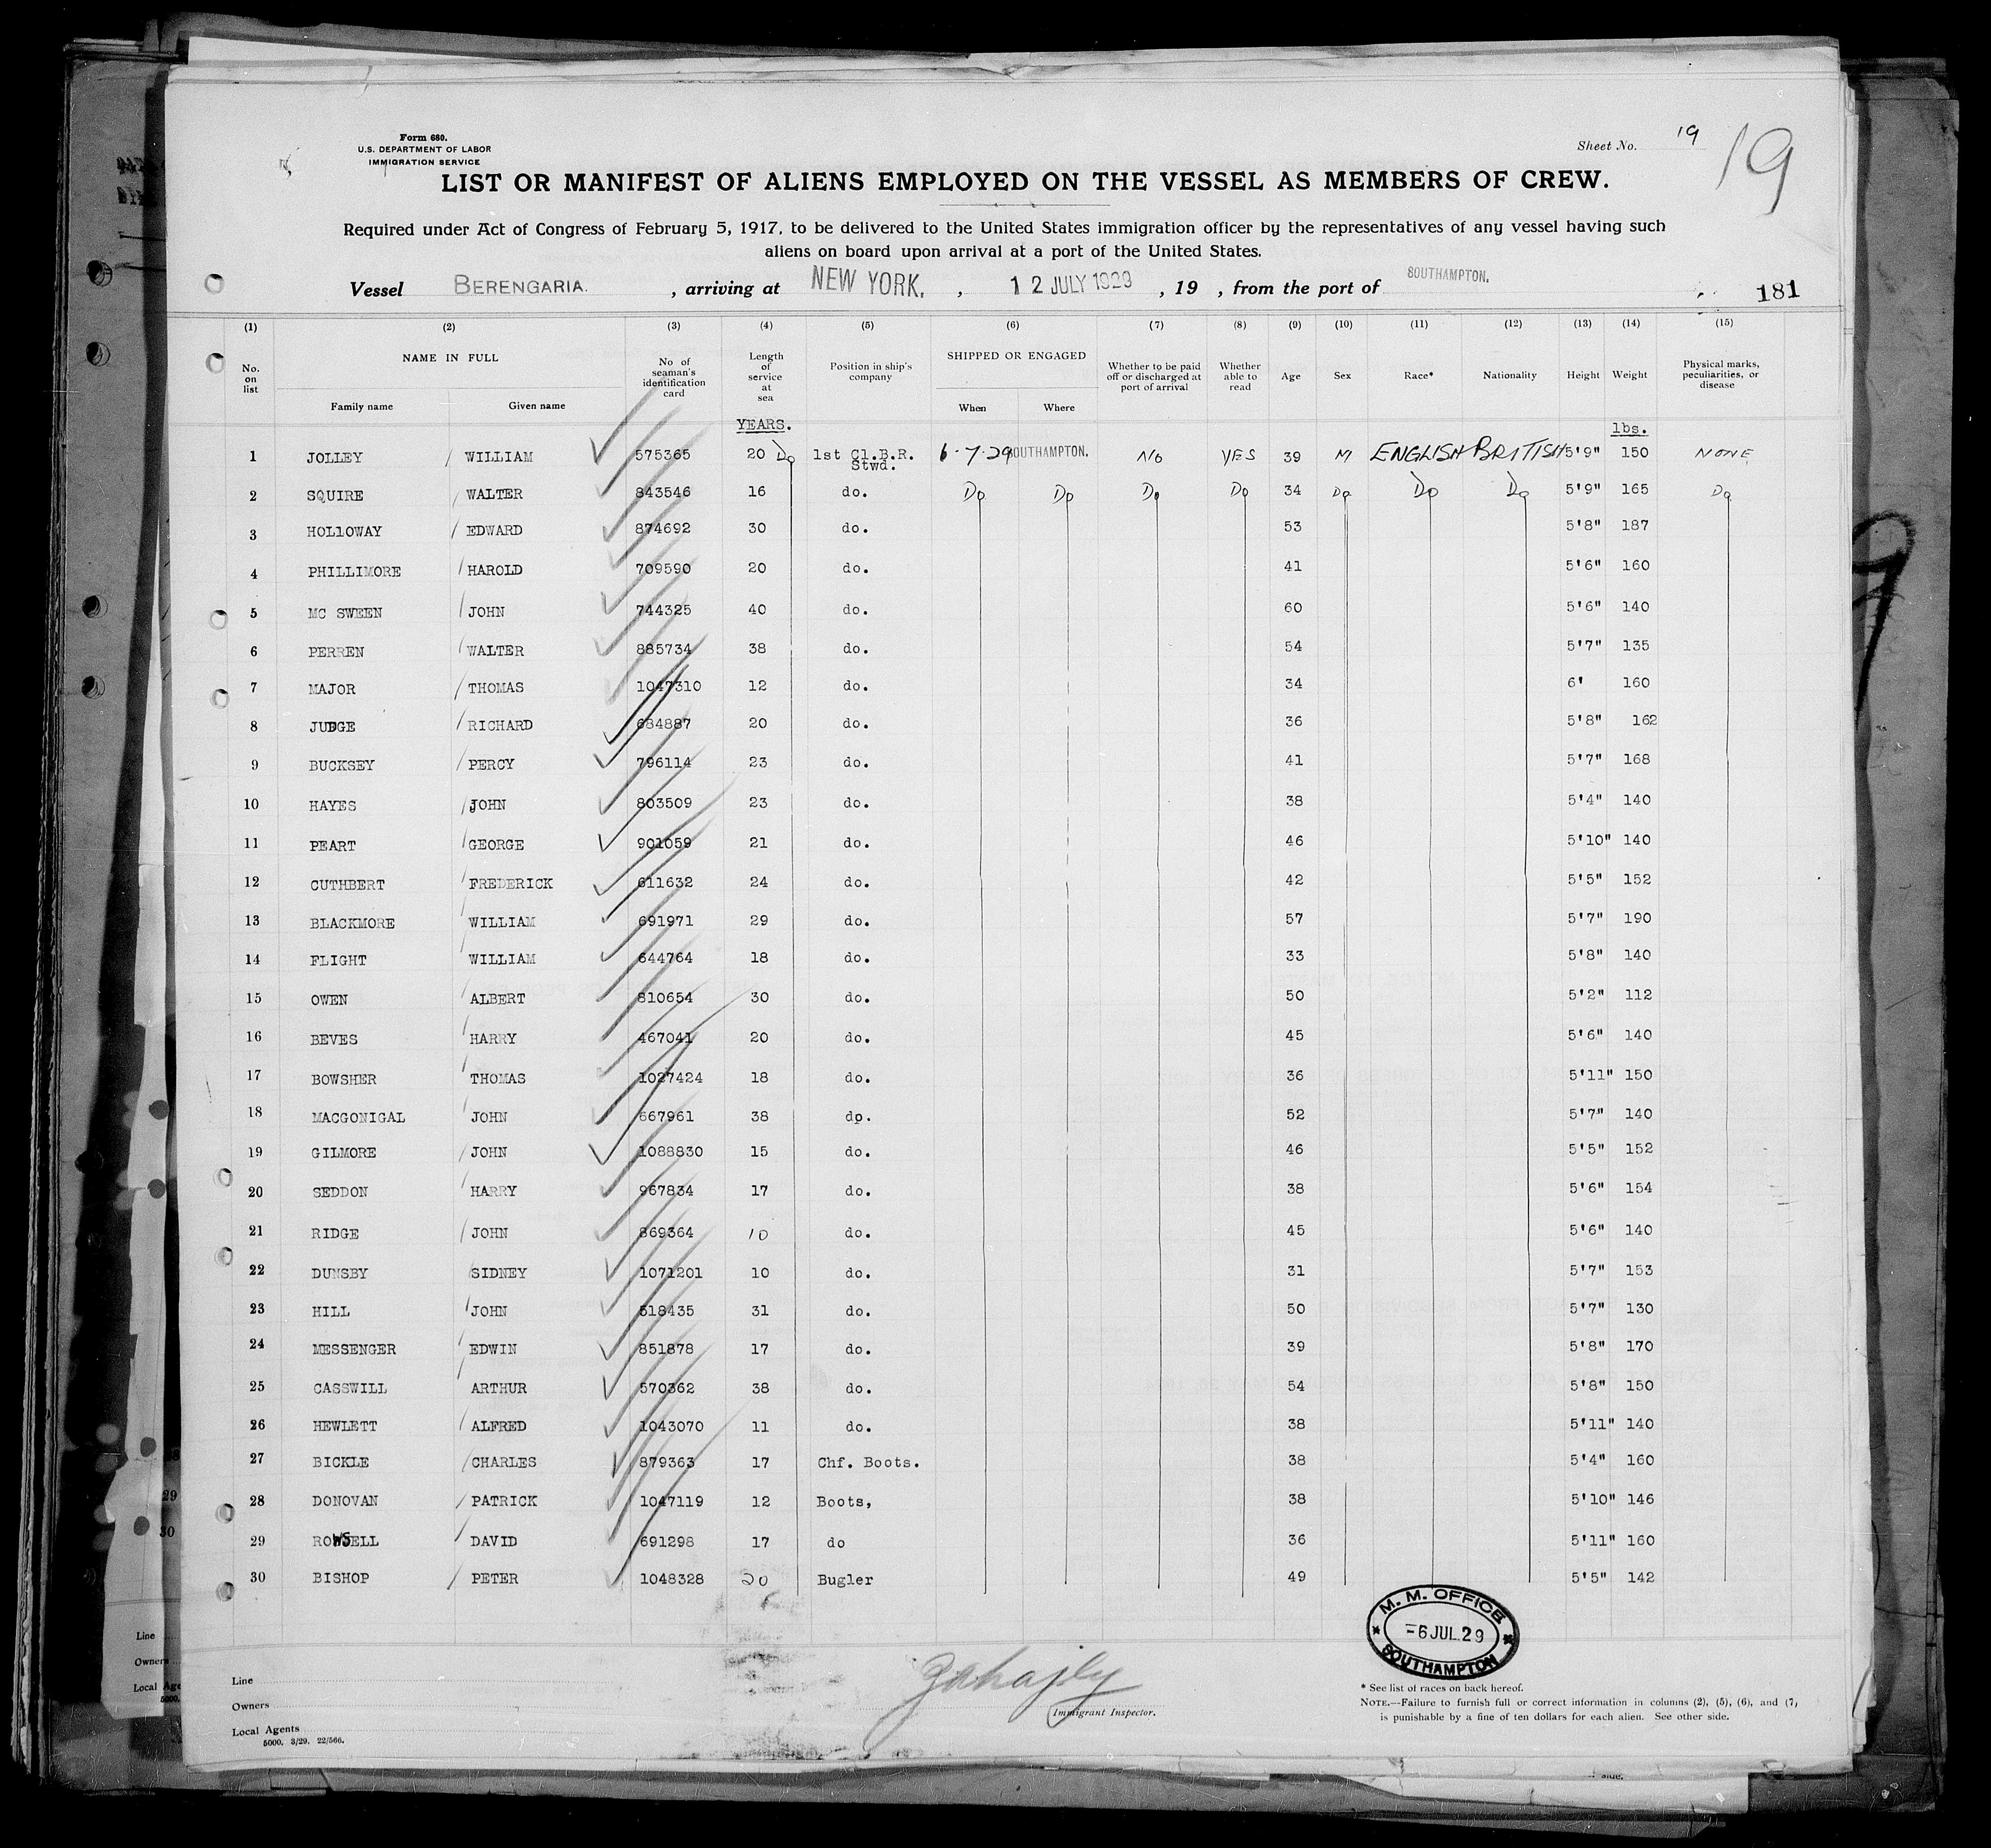 Form 680.
U.S. DEPARTMENT OF LABOR
IMMIGRATION SERVICE
Sheet No. 19
19
LIST OR MANIFEST OF ALIENS EMPLOYED ON THE VESSEL AS MEMBERS OF CREW.
Required under Act of Congress of February 5, 1917, to be delivered to the United States immigration officer by the representatives of any vessel having such
aliens on board upon arrival at a port of the United States.
Vessel BERENGARIA. , arriving at NEW YORK. , 12 JULY 1929 , 19 , from the port of SOUTHAMPTON. 181
(1) (2) (3) (4) (5) (6) (7) (8) (9) (10) (11) (12) (13) (14) (15)
No. on list NAME IN FULL Family name Given name No of seaman's identification card Length of service at sea Position in ship's company SHIPPED OR ENGAGED When Where Whether to be paid off or discharged at port of arrival Whether able to read Age Sex Race* Nationality Height Weight Physical marks, peculiarities, or disease
YEARS. lbs.
1 JOLLEY / WILLIAM 575365 20 Do 1st Cl.B.R. Stwd. 6-7-29 SOUTHAMPTON. NO YES 39 M ENGLISH BRITISH 5'9" 150 NONE
2 SQUIRE / WALTER 843546 16 do. Do Do Do Do 34 Do Do Do 5'9" 165 Do
3 HOLLOWAY / EDWARD 874692 30 do. 53 5'8" 187
4 PHILLIMORE / HAROLD 709590 20 do. 41 5'6" 160
5 MC SWEEN / JOHN 744325 40 do. 60 5'6" 140
6 PERREN / WALTER 885734 38 do. 54 5'7" 135
7 MAJOR / THOMAS 1047310 12 do. 34 6' 160
8 JUDGE / RICHARD 684887 20 do. 36 5'8" 162
9 BUCKSEY / PERCY 796114 23 do. 41 5'7" 168
10 HAYES / JOHN 803509 23 do. 38 5'4" 140
11 PEART / GEORGE 901059 21 do. 46 5'10" 140
12 CUTHBERT / FREDERICK 611632 24 do. 42 5'5" 152
13 BLACKMORE / WILLIAM 691971 29 do. 57 5'7" 190
14 FLIGHT / WILLIAM 644764 18 do. 33 5'8" 140
15 OWEN / ALBERT 810654 30 do. 50 5'2" 112
16 BEVES / HARRY 467041 20 do. 45 5'6" 140
17 BOWSHER / THOMAS 1027424 18 do. 36 5'11" 150
18 MACGONIGAL / JOHN 667961 38 do. 52 5'7" 140
19 GILMORE / JOHN 1088830 15 do. 46 5'5" 152
20 SEDDON / HARRY 967834 17 do. 38 5'6" 154
21 RIDGE / JOHN 869364 10 do. 45 5'6" 140
22 DUNSBY / SIDNEY 1071201 10 do. 31 5'7" 153
23 HILL / JOHN 518435 31 do. 50 5'7" 130
24 MESSENGER / EDWIN 851878 17 do. 39 5'8" 170
25 CASSWILL / ARTHUR 570362 38 do. 54 5'8" 150
26 HEWLETT / ALFRED 1043070 11 do. 38 5'11" 140
27 BICKLE / CHARLES 879363 17 Chf. Boots. 38 5'4" 160
28 DONOVAN / PATRICK 1047119 12 Boots, 38 5'10" 146
29 ROWSELL / DAVID 691298 17 do 36 5'11" 160
30 BISHOP / PETER 1048328 20 Bugler 49 5'5" 142
M. M. OFFICE
-6 JUL.29
SOUTHAMPTON
Line
Owners
Local Agents
5000. 3/29. 22/566.
Immigrant Inspector.
* See list of races on back hereof.
NOTE.—Failure to furnish full or correct information in columns (2), (5), (6), and (7)
is punishable by a fine of ten dollars for each alien. See other side.
29
30
Line
Owners
Local Age
5000.
side.